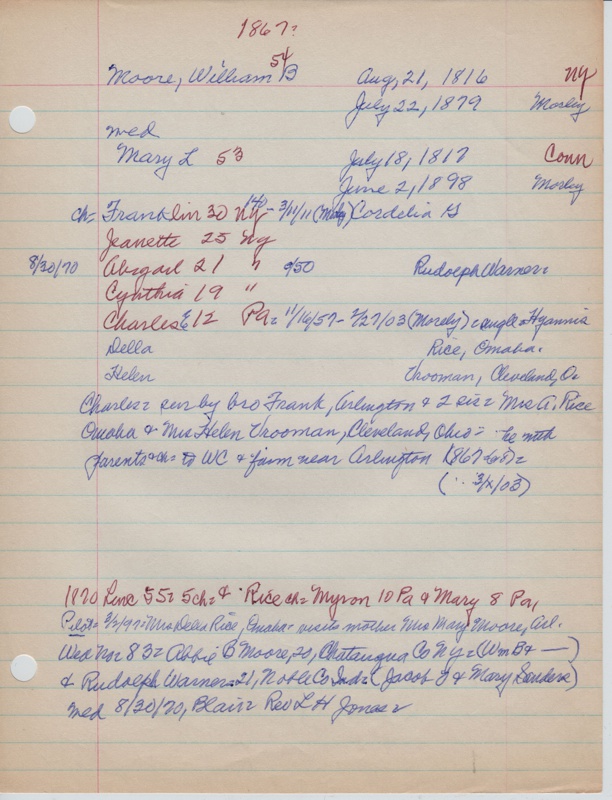 1867?
54
Moore, William B Aug, 21, 1816 NY
July 22, 1879 Morley
med
Mary L 53 July 18, 1817 Conn
June 2, 1898 Morley
ch= Franklin 30 NY - 3/11/11 (Mrly) Cordelia G
Jeanette 25 NY
8/30/70 Abigail 21 " 9/50 Rudolph Warner=
Cynthia 19 "
Charles E 12 Pa= 11/16/57 - 2/27/03 (Morely) = single = Hyannis
Della Rice, Omaha.
Helen Vrooman, Cleveland, O=
Charles= sur by bro Frank, Arlington & 2 sis= Mrs A. Rice
Omaha & Mrs Helen Vrooman, Cleveland, Ohio= he with
parents & ch= to WC & farm near Arlington 1867
3/ /03)
1870 Line 55= 5 ch= & Rice ch= Myron 10 Pa & Mary 8 Pa,
Pilot= 3/2/97= Mrs Della Rice, Omaha= visits mother Mrs Mary Moore, Arl.
Wed No= 83= Abbie B Moore, 20, Chatauqua Co NY= (Wm B & —)
& Rudolph Warner= 21, Noble Co Ind= (Jacob & Mary Sanders)
med 8/30/70, Blair= Rev L H Jones=